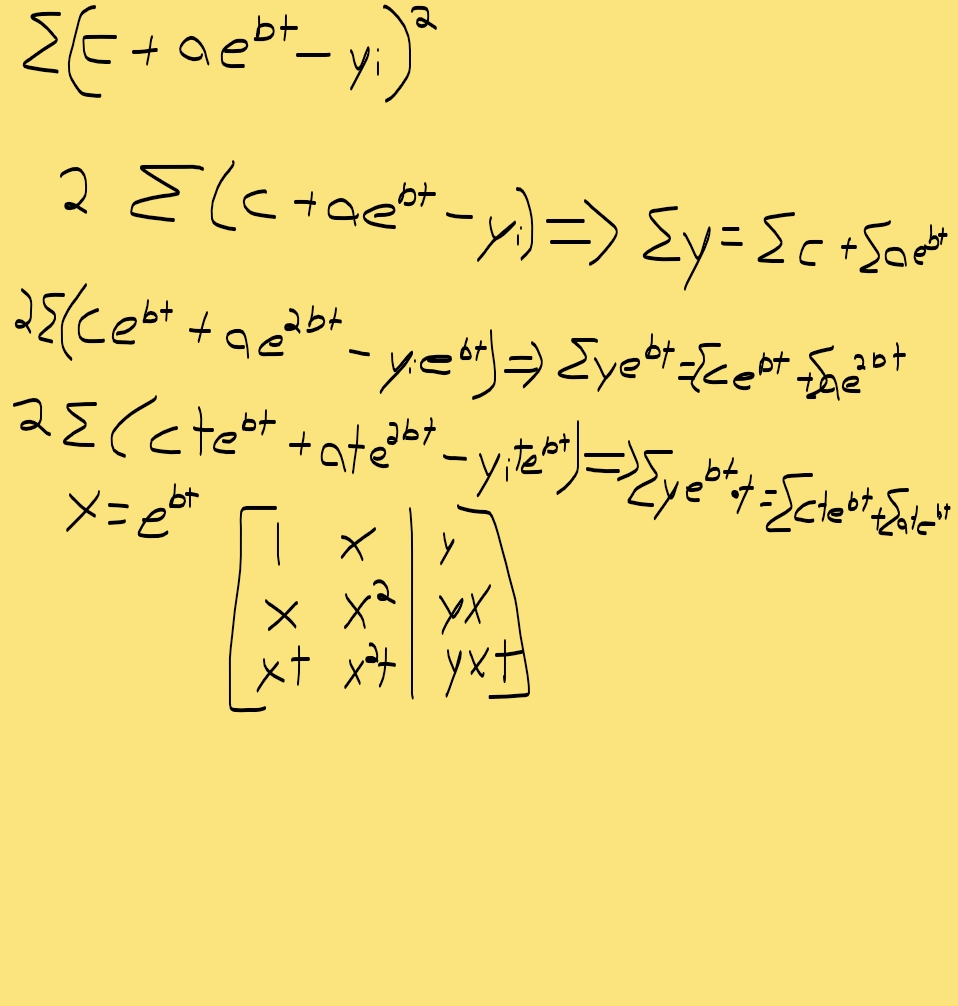 Σ(c + ae^{bt} - y_i)^2
2 Σ(c + ae^{bt} - y_i) => Σy = Σc + Σae^{bt}
2Σ(ce^{bt} + ae^{2bt} - y_i e^{bt}) => Σye^{bt} = Σce^{bt} + Σae^{2bt}
2Σ(cte^{bt} + ate^{2bt} - y_i te^{bt}) => Σye^{bt}·t = Σcte^{bt} + Σate^{bt}
x = e^{bt}
[1 x | y
x x^2 | yx
xt x^2t | yxt]